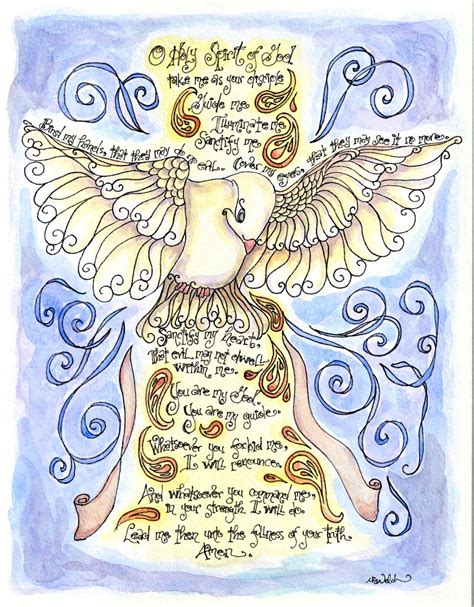 O Holy Spirit of God
take me as your disciple
Guide me
Illuminate me
Sanctify me.
Bind my hands, that they may do no evil. Cover my eyes, that they may see it no more.
Sanctify my heart,
That evil may not dwell
within me.
You are my God.
You are my guide.
Whatsoever you forbid me,
I will renounce.
And whatsoever you command me,
in your strength I will do.
Lead me then unto the fullness of your truth.
Amen.